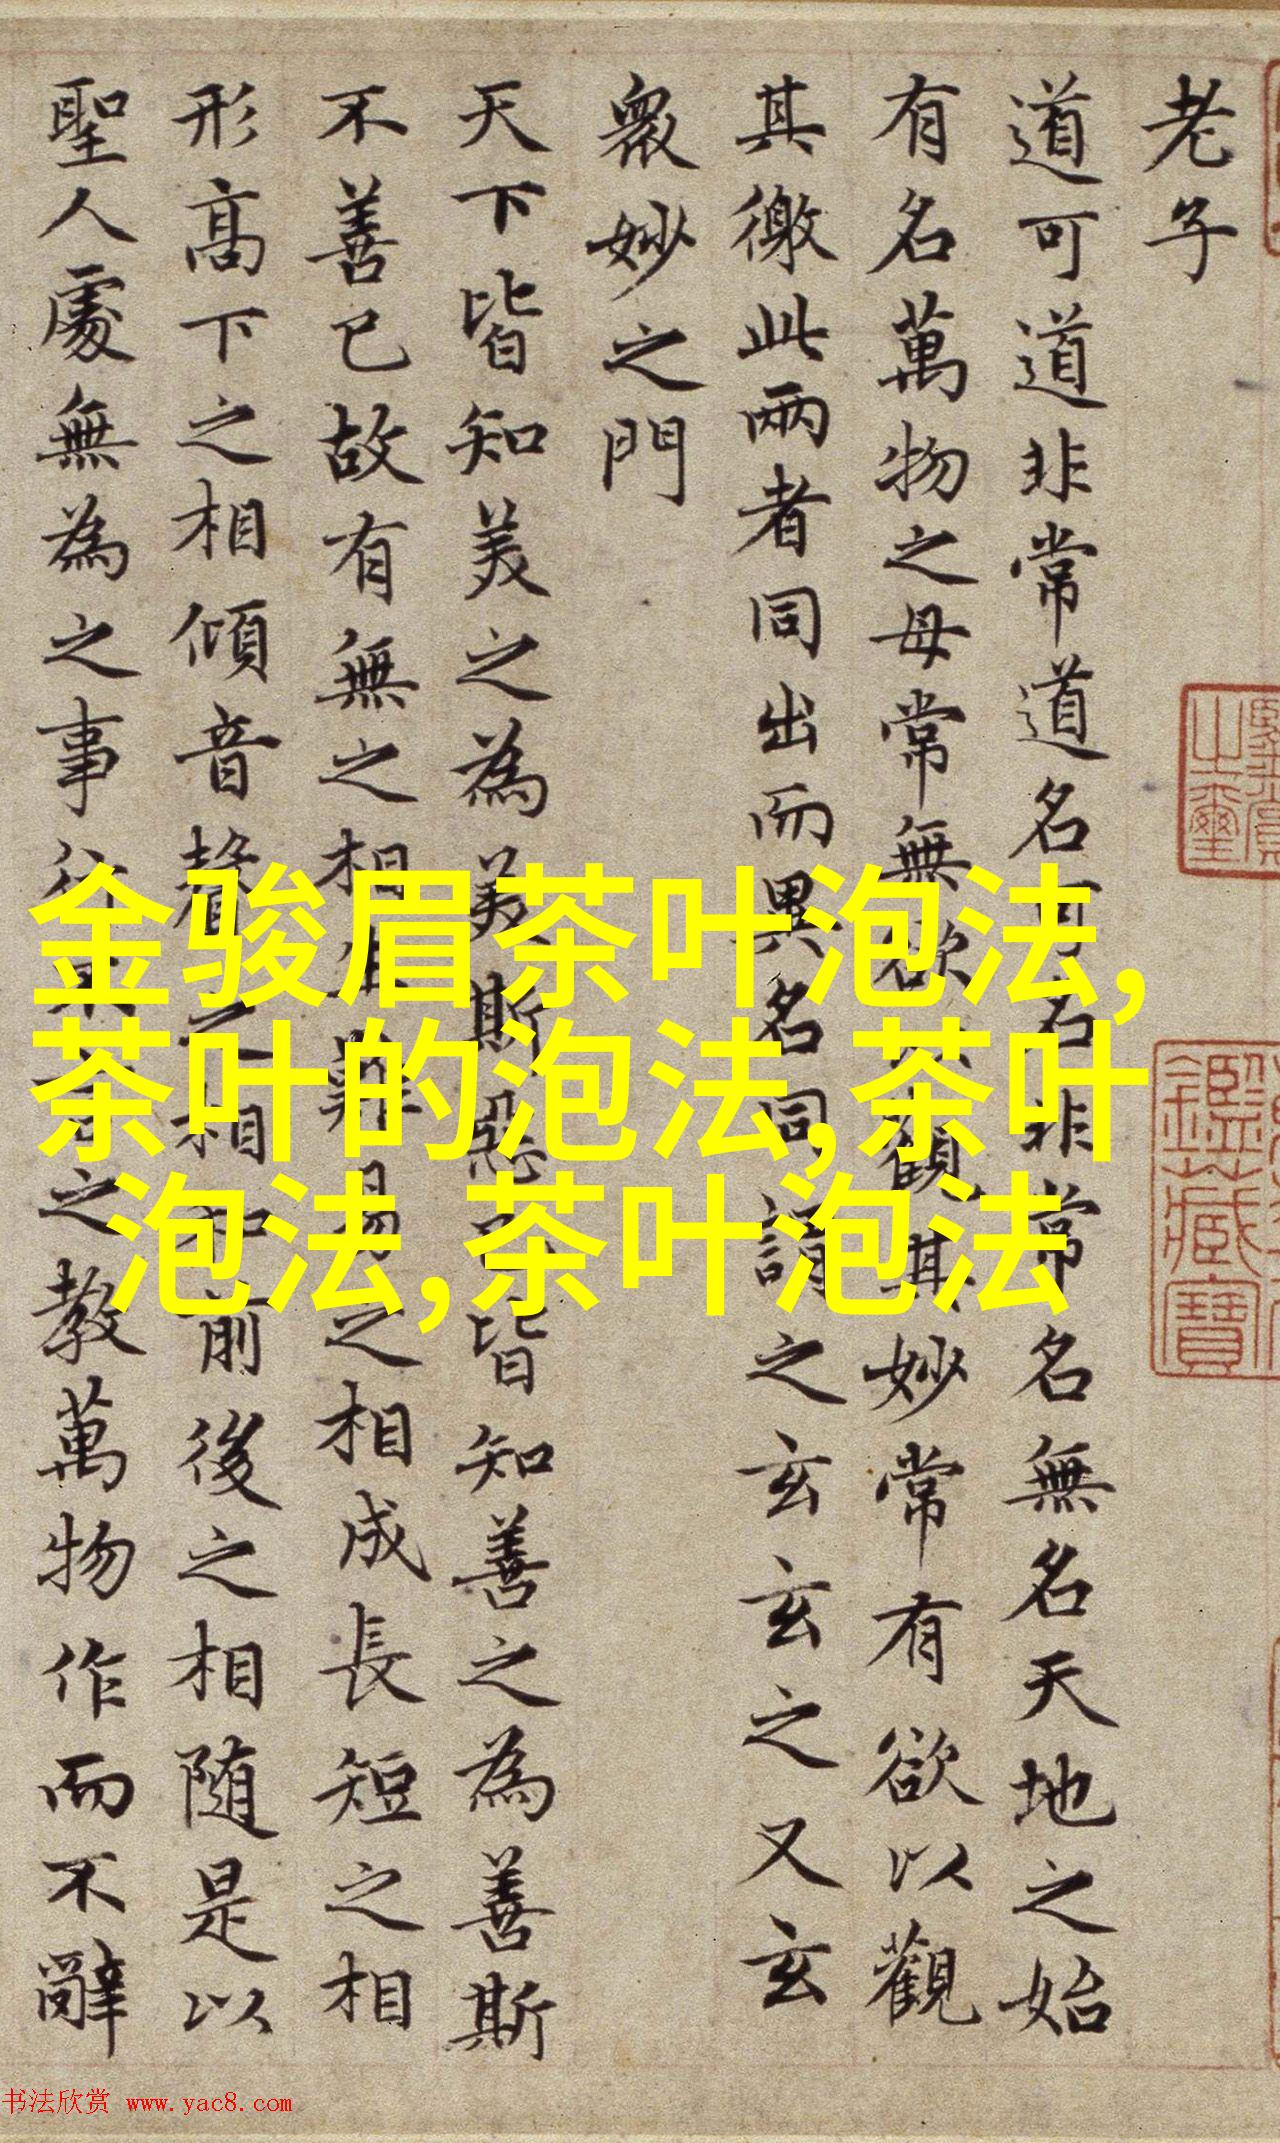 老子
道可道非常道名可名非常名無名天地之始
有名萬物之母常無欲以觀其妙常有欲以觀
其徼此兩者同出而異名同謂之玄玄之又玄
衆妙之門
天下皆知美之為美斯惡已皆知善之為善斯
不善已故有無之相生難易之相成長短之相
形高下之相傾音聲之相和前後之相随是以
聖人處無為之事行不言之教萬物作而不辭
之璽
鑑藏寶
金骏眉茶叶泡法,
茶叶的泡法,茶叶
泡法,茶叶泡法
书法欣赏 www.yac8.com